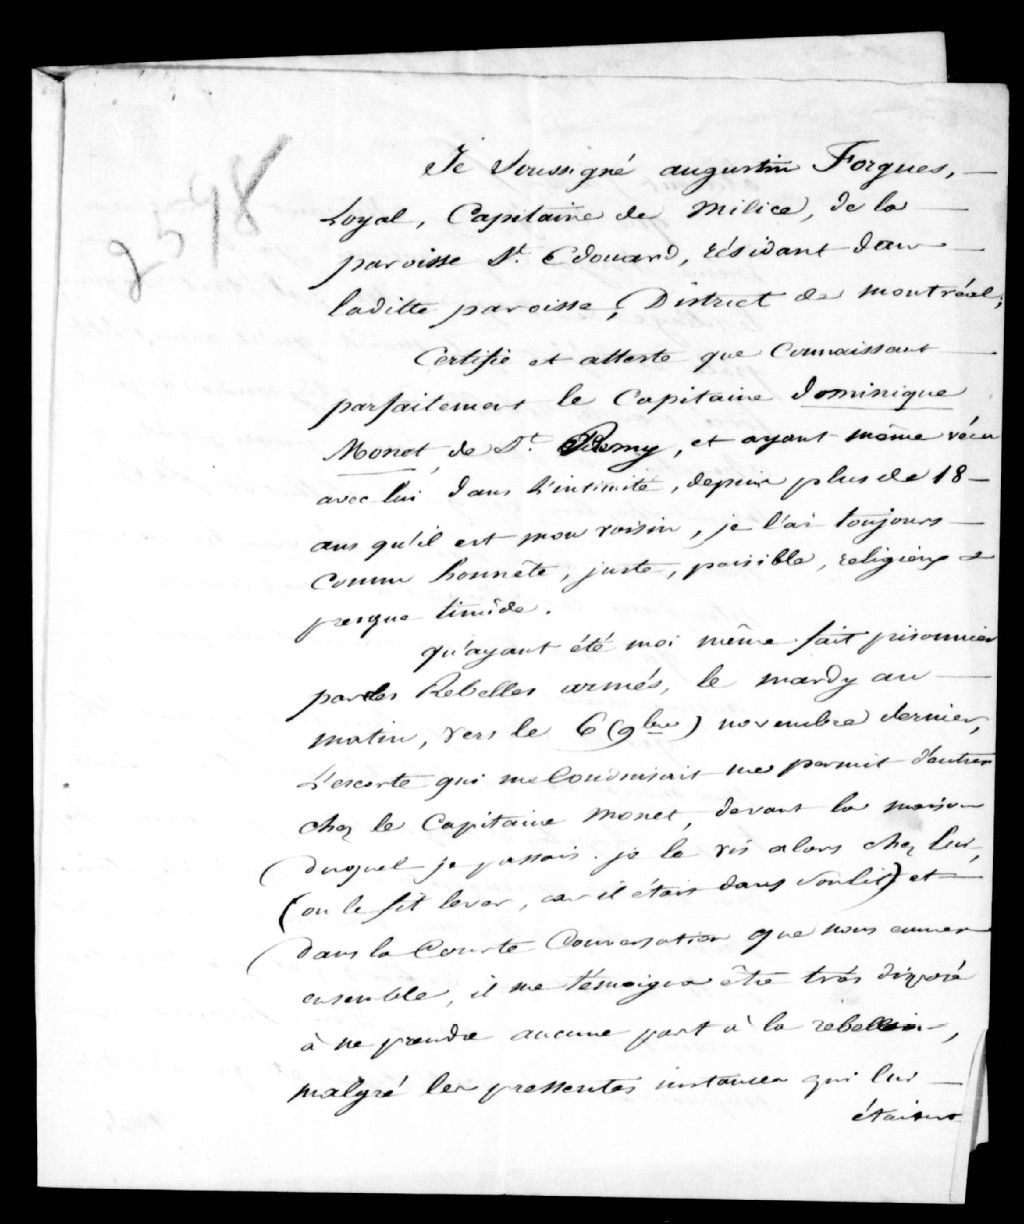 2598
Je soussigné augustin Forgues,
Loyal, Capitaine de Milice, de la
paroisse St. Edouard, résidant dans
laditte paroisse, District de montréal;
Certifie et atteste que Connaissant
parfaitement le Capitaine dominique
Monet de St. Remy, et ayant même vécu
avec lui dans l'intimité, depuis plus de 18
ans qu'il est mon voisin, je l'ai toujours
connu honnête, juste, paisible, religieux &
presque timide.
qu'ayant été moi même fait prisonnier
par les Rebelles armés, le mardy au
matin, vers le 6 (9bre) novembre dernier,
L'escorte qui me Conduisait me permit d'entrer
chez le Capitaine Monet, devant la maison
duquel je passais. je le vis alors chez lui,
(on le fit lever, car il était dans son lit) et
dans la Courte Conversation que nous eumes
ensemble, il me témoigna être très disposé
à ne prendre aucune part à la rebellion,
malgré les pressentes instances qui lui
étaient